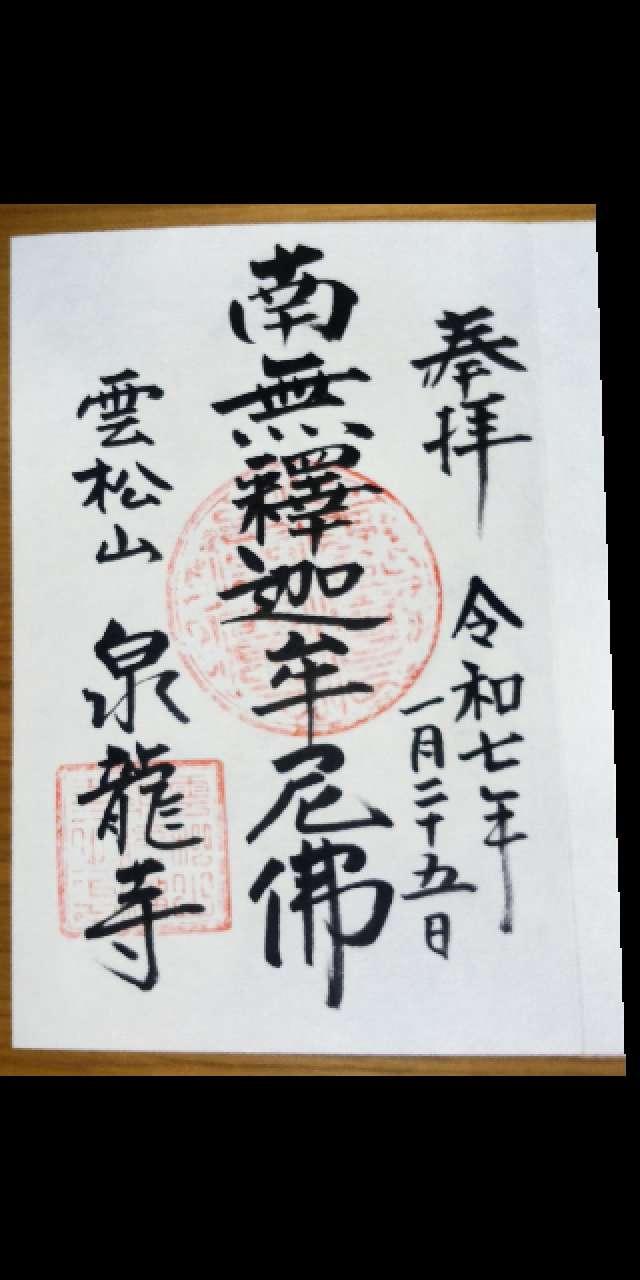 奉拝
令和七年
一月二十五日
南無釋迦牟尼佛
雲松山
泉龍寺